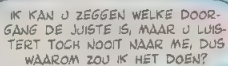 IK KAN U ZEGGEN WELKE DOOR-
GANG DE JUISTE IS, MAAR U LUIS-
TERT TOCH NOOIT NAAR ME, DUS
WAAROM ZOU IK HET DOEN?